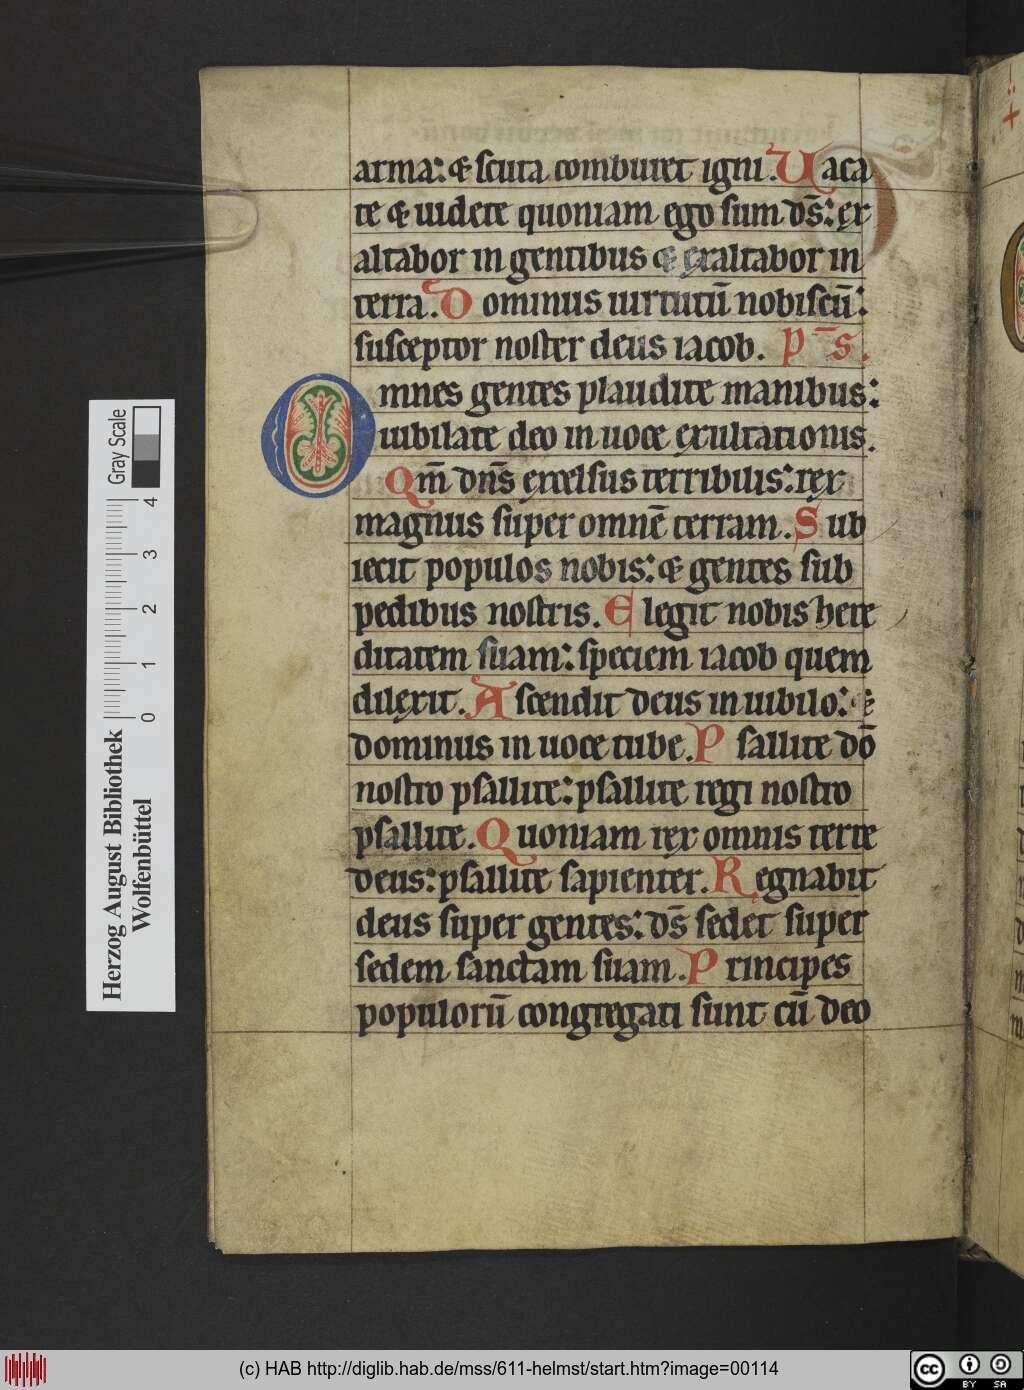 arma: & scuta comburet igni. Uaca
te & uidete quoniam ego sum ds̄: ex
altabor in gentibus & exaltabor in
terra. Dominus uirtutū nobiscū:
susceptor noster deus iacob. p̄s.
Omnes gentes plaudite manibus:
iubilate deo in uoce exultationis.
Qm̄ dn̄s excelsus terribilis: rex
magnus super omnē terram. Sub
iecit populos nobis: & gentes sub
pedibus nostris. Elegit nobis here
ditatem suam: speciem iacob quem
dilexit. Ascendit deus in iubilo: &
dominus in uoce tube. Psallite dō
nostro psallite: psallite regi nostro
psallite. Quoniam rex omnis terre
deus: psallite sapienter. Regnabit
deus super gentes: ds̄ sedet super
sedem sanctam suam. Principes
populorū congregati sunt cū deo
Herzog August Bibliothek
Wolfenbüttel
0 1 2 3 4
Gray Scale
(c) HAB http://diglib.hab.de/mss/611-helmst/start.htm?image=00114
cc BY SA